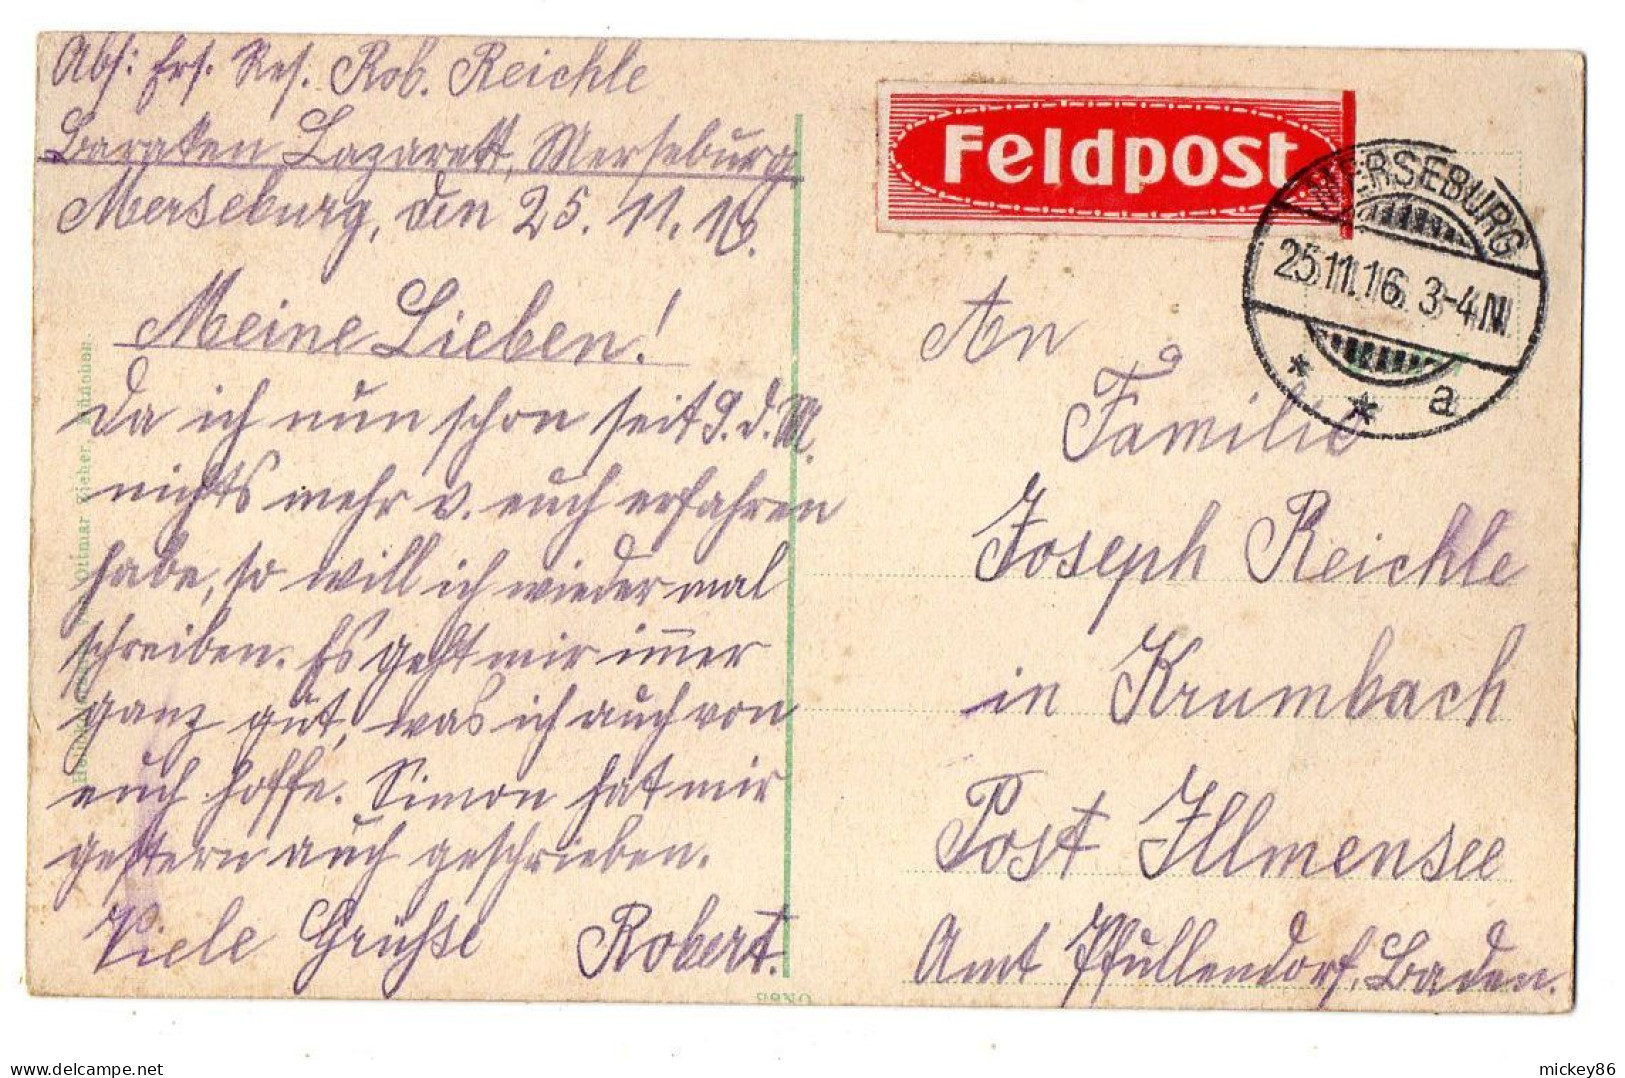 Abs: Ers. Res. Rob. Reichle
Baraken Lazarett, Merseburg
Merseburg, den 25. 11. 16.
Meine Lieben!
Da ich nun schon seit 9. d. M.
nichts mehr v. euch erfahren
habe, so will ich wieder mal
schreiben. Es geht mir im̄er
ganz gut, was ich auch von
euch hoffe. Simon hat mir
gestern auch geschrieben.
Viele Grüsse Robert.
Feldpost
MERSEBURG
25.11.16. 3-4 N
* * a
An
Familie
Joseph Reichle
in Krumbach
Post Illmensee
Amt Pfullendorf, Baden.
Ottmar Zieher, München.
mickey86